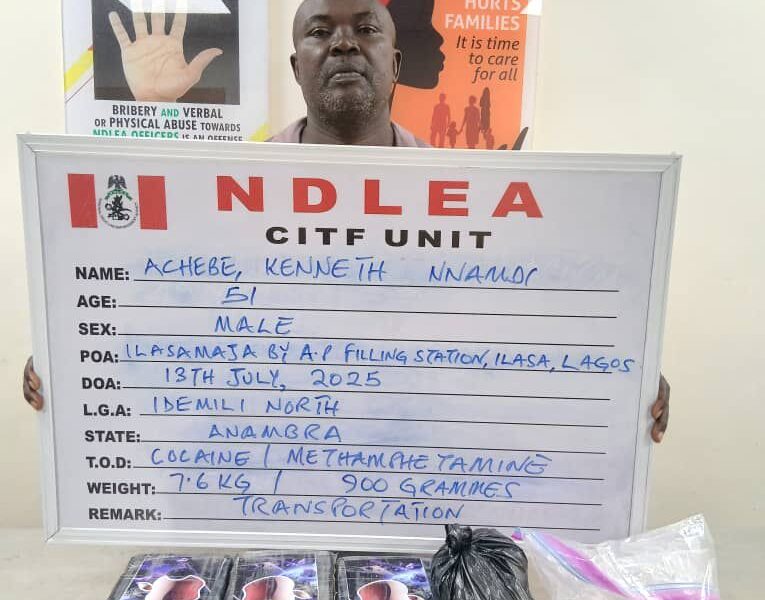 HURTS
FAMILIES
It is time
to care
for all
BRIBERY AND VERBAL
OR PHYSICAL ABUSE TOWARDS
NDLEA OFFICERS IS AN OFFENSE
NDLEA
CITF UNIT
NAME: ACHEBE, KENNETH NNAMDI
AGE: 51
SEX: MALE
POA: ILASAMAJA BY A.P FILLING STATION, ILASA, LAGOS
DOA: 13TH JULY, 2025
L.G.A: IDEMILI NORTH
STATE: ANAMBRA
T.O.D: COCAINE / METHAMPHETAMINE
WEIGHT: 7.6 KG / 900 GRAMMES
REMARK: TRANSPORTATION